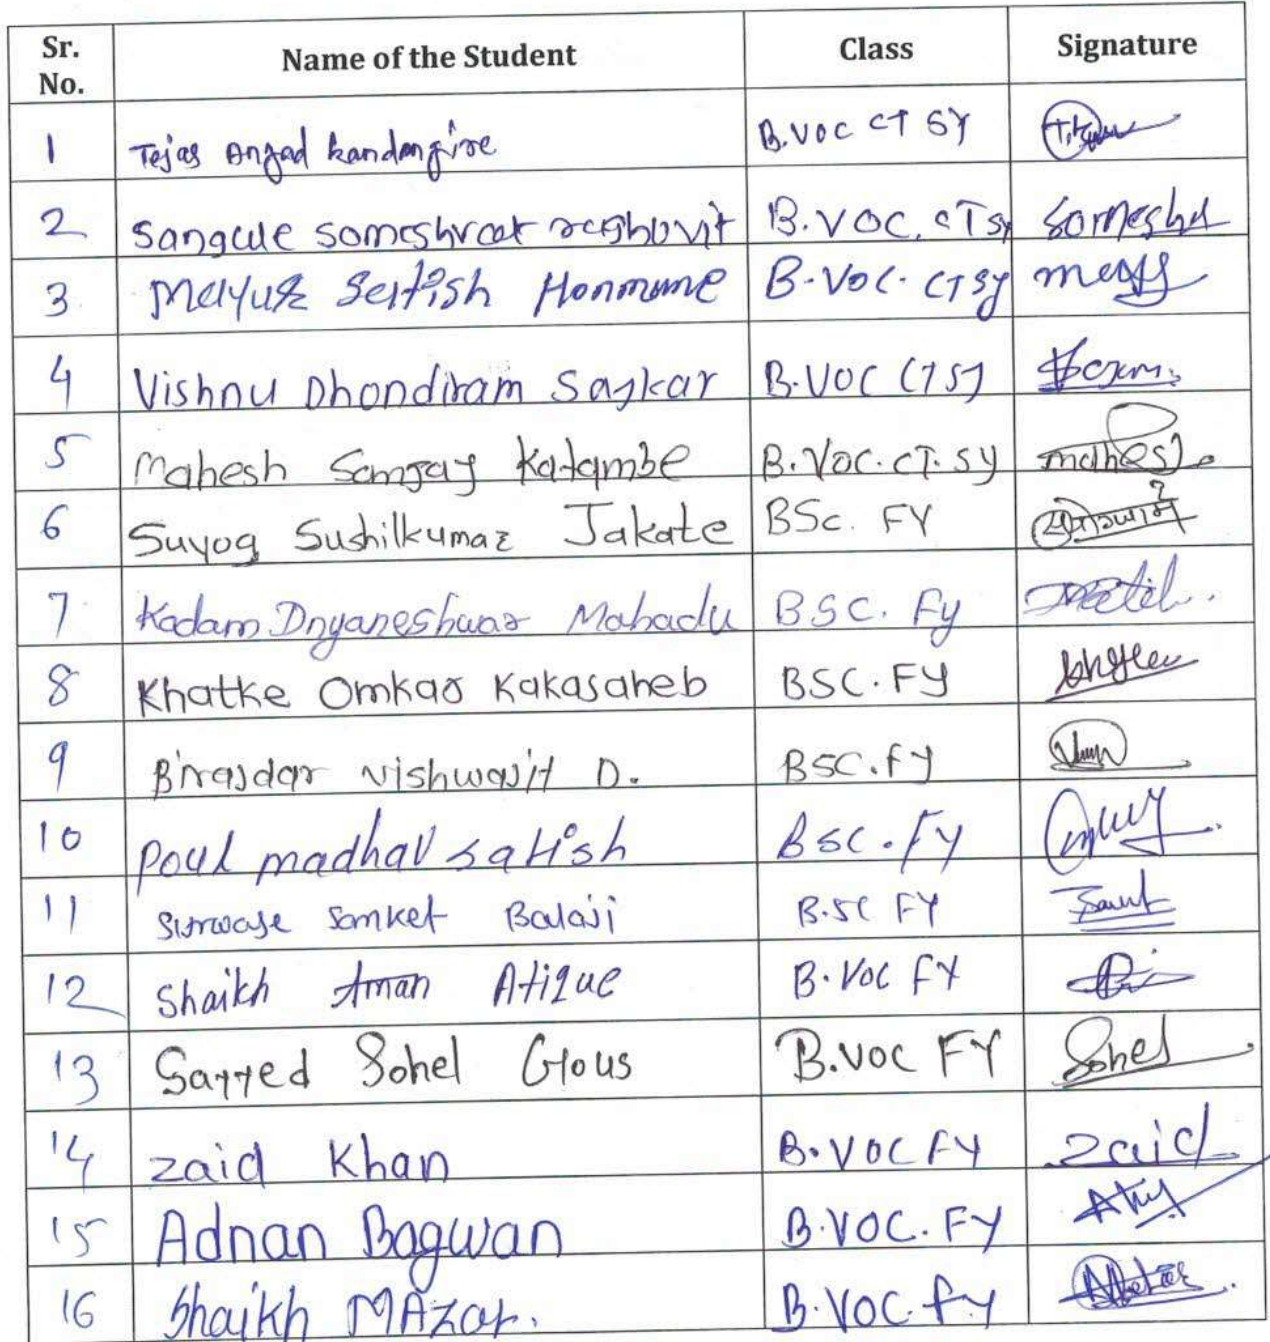 Sr. No. Name of the Student Class Signature
1 Tejas Angad kandangire B.VOC CT SY
2 Sangule someshrat raghuvit B.VOC. CT SY Somesha
3 Mayur Satish Honmane B.VOC. CTSY
4 Vishnu Dhondiram Saykar B.VOC CTSY
5 Mahesh Sanjay Katambe B.Voc.CT.SY mahesh
6 Suyog Sushilkumar Jakate BSc. FY
7 Kadam Dnyaneshwar Mahadu BSC. Fy
8 Khatke Omkar Kakasaheb BSC.FY
9 Birajdar vishwajit D. BSC.FY
10 Poul madhav satish BSC.FY
11 Surwase Sanket Balaji B.SC FY
12 Shaikh Aman Atique B.Voc FY
13 Sayyed Sohel Gous B.VOC FY Sohel
14 zaid Khan B.VOC FY zaid
15 Adnan Bagwan B.VOC.FY
16 Shaikh MAzar. B.VOC.FY